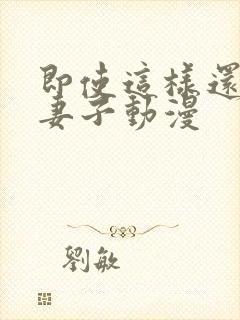 即使這樣還
妻子動漫
劉敏